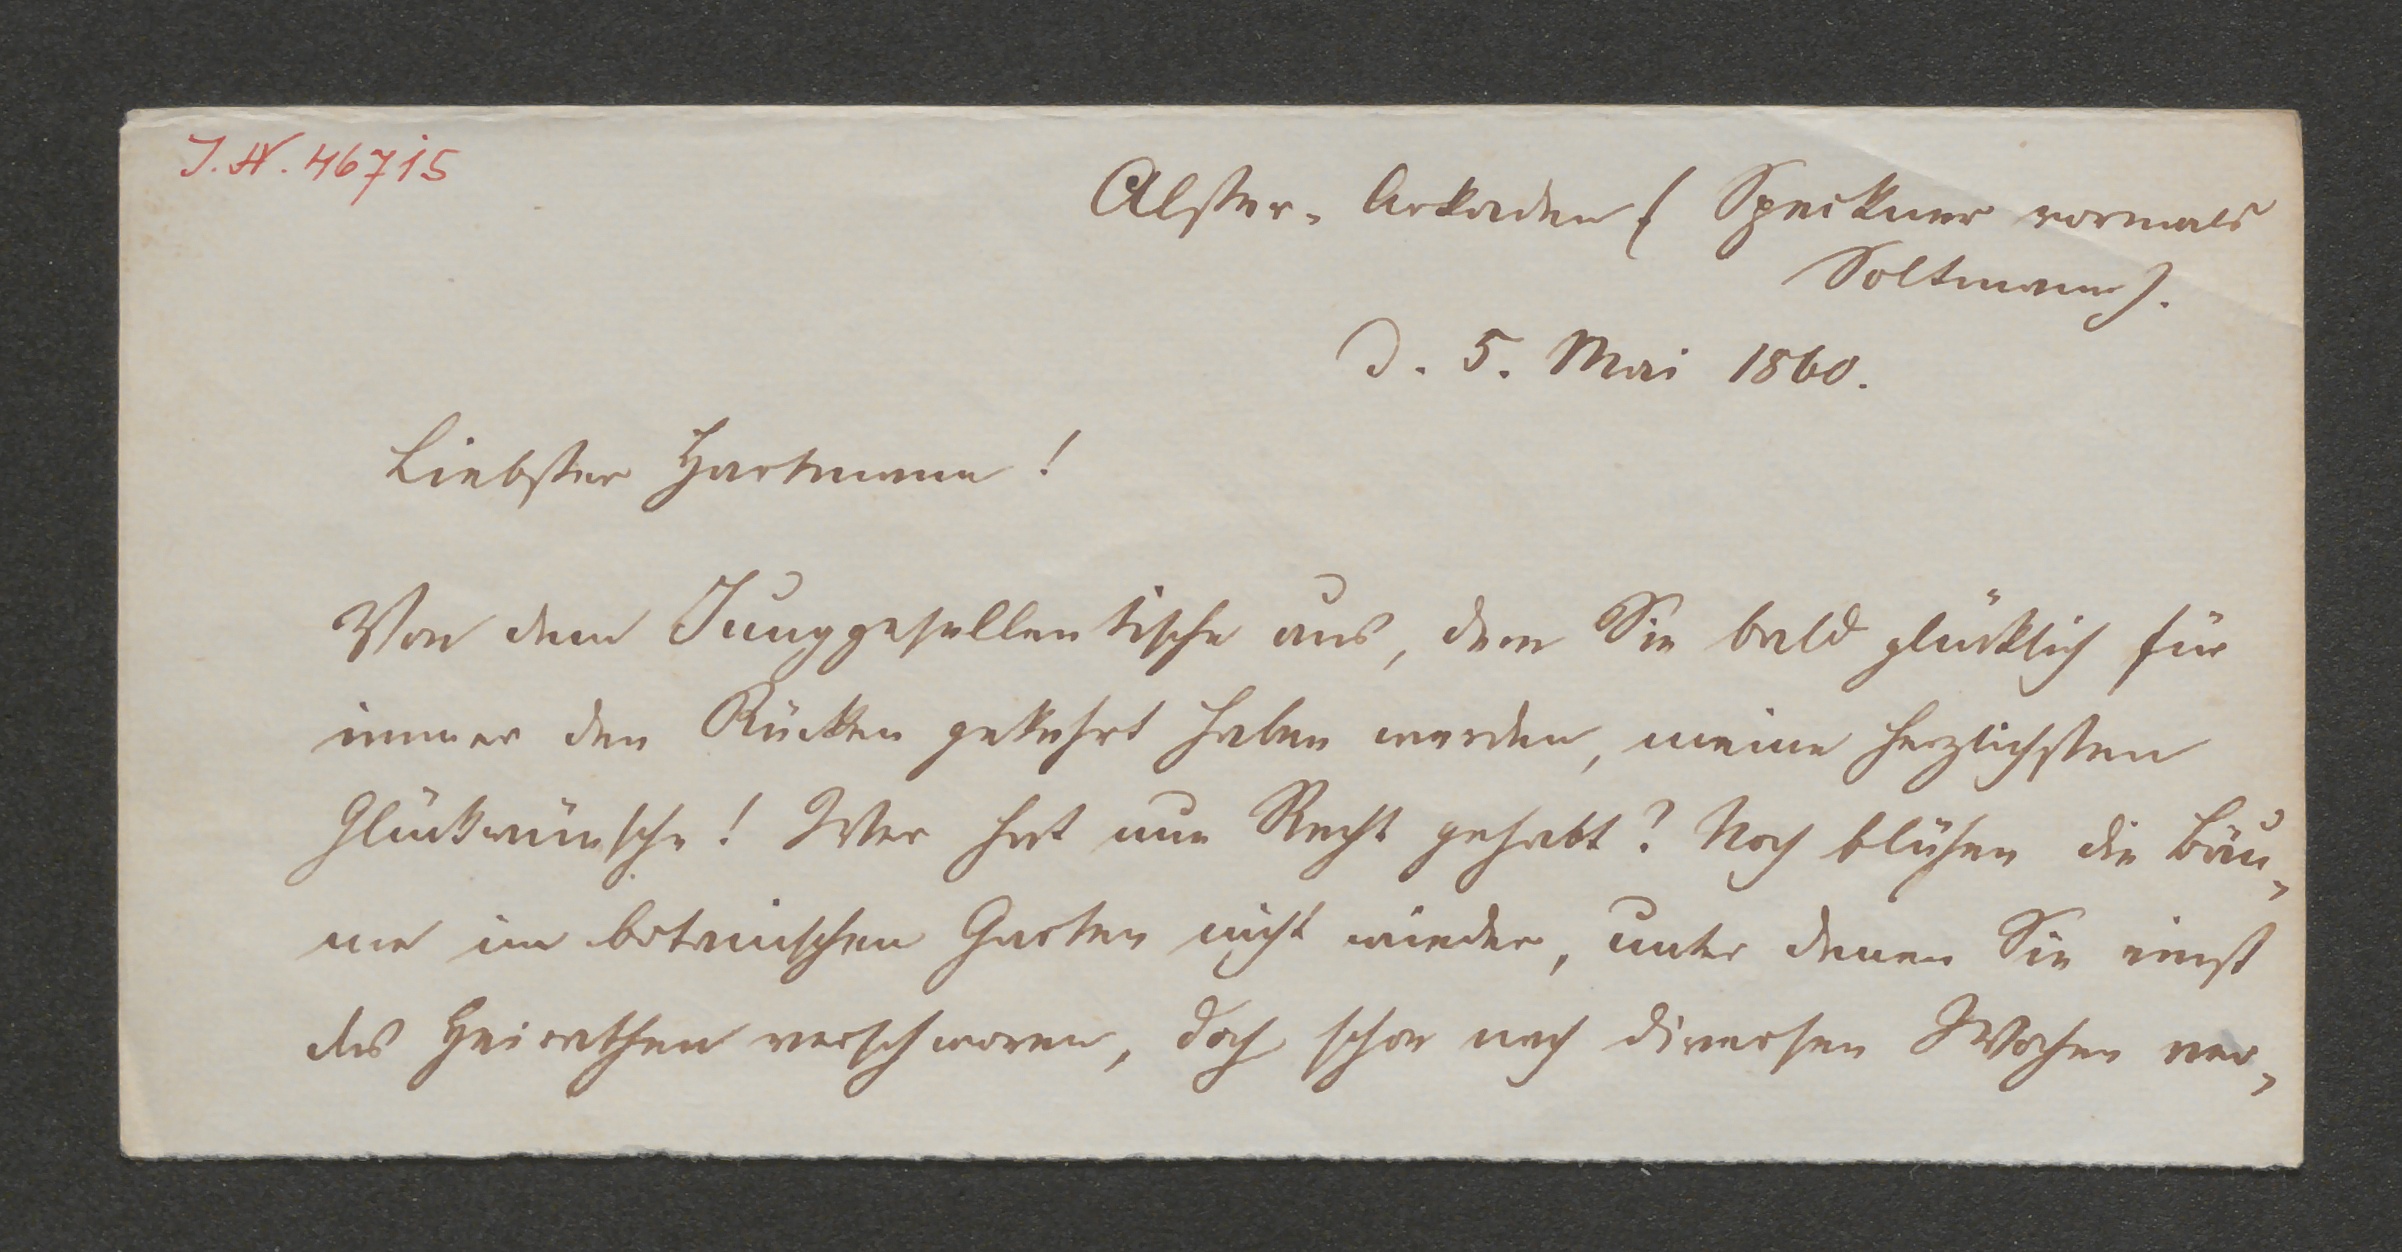 I.N. 46715
Alster-Arkaden (Speckner vormals
Soltmann).
D. 5. Mai 1860.
Liebster Hartmann!
Von dem Junggesellentische aus, dem Sie bald glücklich für
immer den Rücken gekehrt haben werden, meine herzlichsten
Glückwünsche! Wer hat nun Recht gehabt? Noch blühen die Bäu-
me im botanischen Garten nicht wieder, unter denen Sie einst
das Heirathen verschworen, doch schon nach diversen Wochen ver-